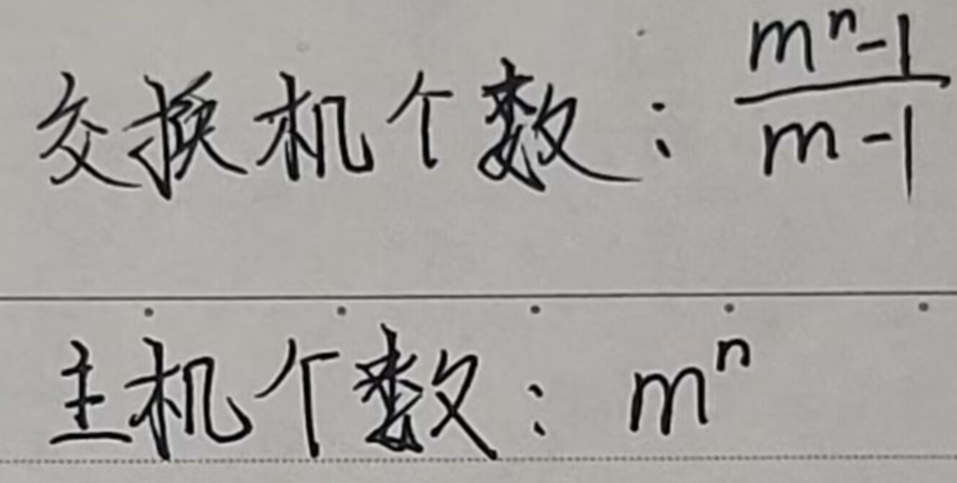 交换机个数：\frac{m^n-1}{m-1}
主机个数：m^n